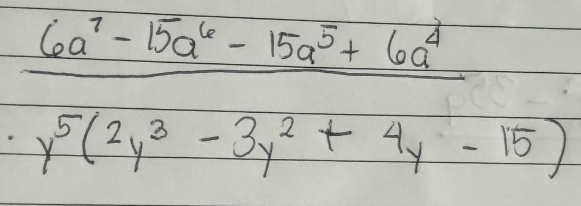 6a⁷ - 15a⁶ - 15a⁵ + 6a⁴
. y⁵(2y³ - 3y² + 4y - 15)